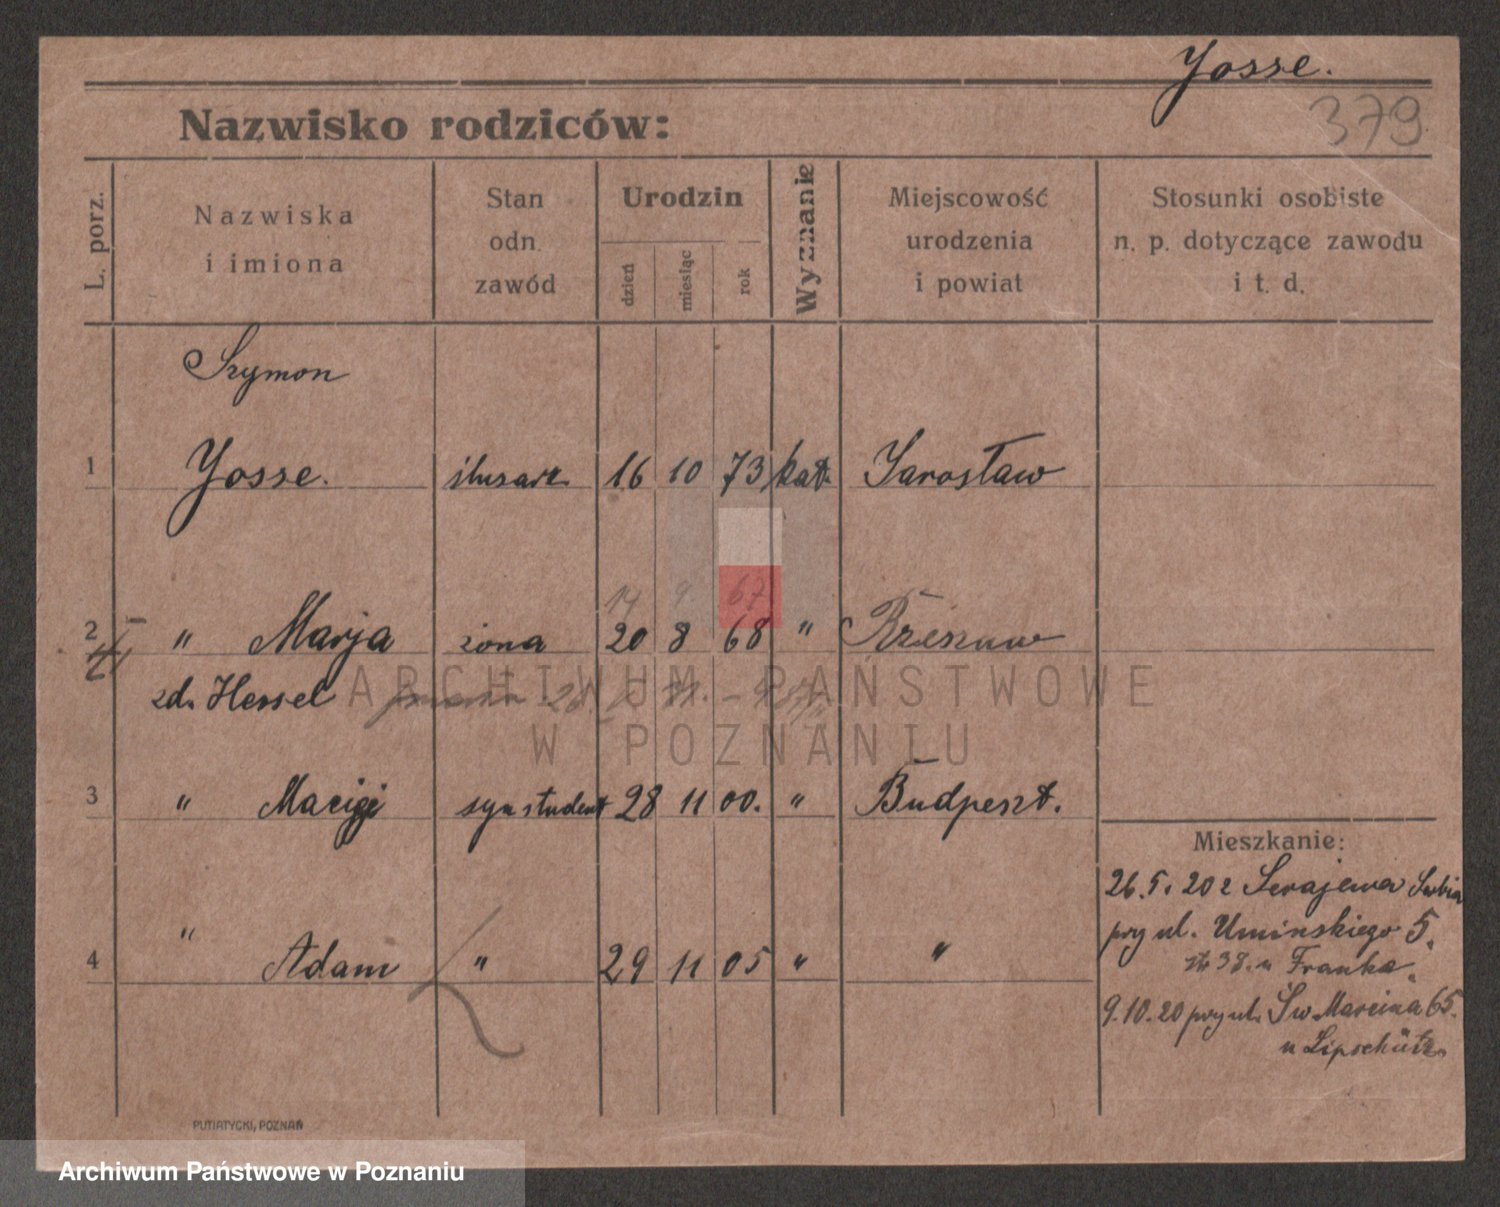 Yosse.
379
Nazwisko rodziców:
L. porz.
Nazwiska
i imiona
Stan
odn.
zawód
Urodzin
dzień
miesiąc
rok
Wyznanie
Miejscowość
urodzenia
i powiat
Stosunki osobiste
n. p. dotyczące zawodu
i t. d.
Szymon
1 Yosse. ślusarz 16 10 73 kat. Jarosław
14 9 67
2 " Marja żona 20 8 68 " Rzeszów
zd. Hessel
3 " Maciej syn student 28 11 00. " Budpeszt.
4 " Adam " 29 11 05 " "
Mieszkanie:
26.5.20 z Serajewa Serbia
przy ul. Umińskiego 5.
u Franka.
9.10.20 przy ul. Św. Marcina 65.
u Lipschütz.
PUTIATYCKI, POZNAŃ
ARCHIWUM PAŃSTWOWE
W POZNANIU
Archiwum Państwowe w Poznaniu